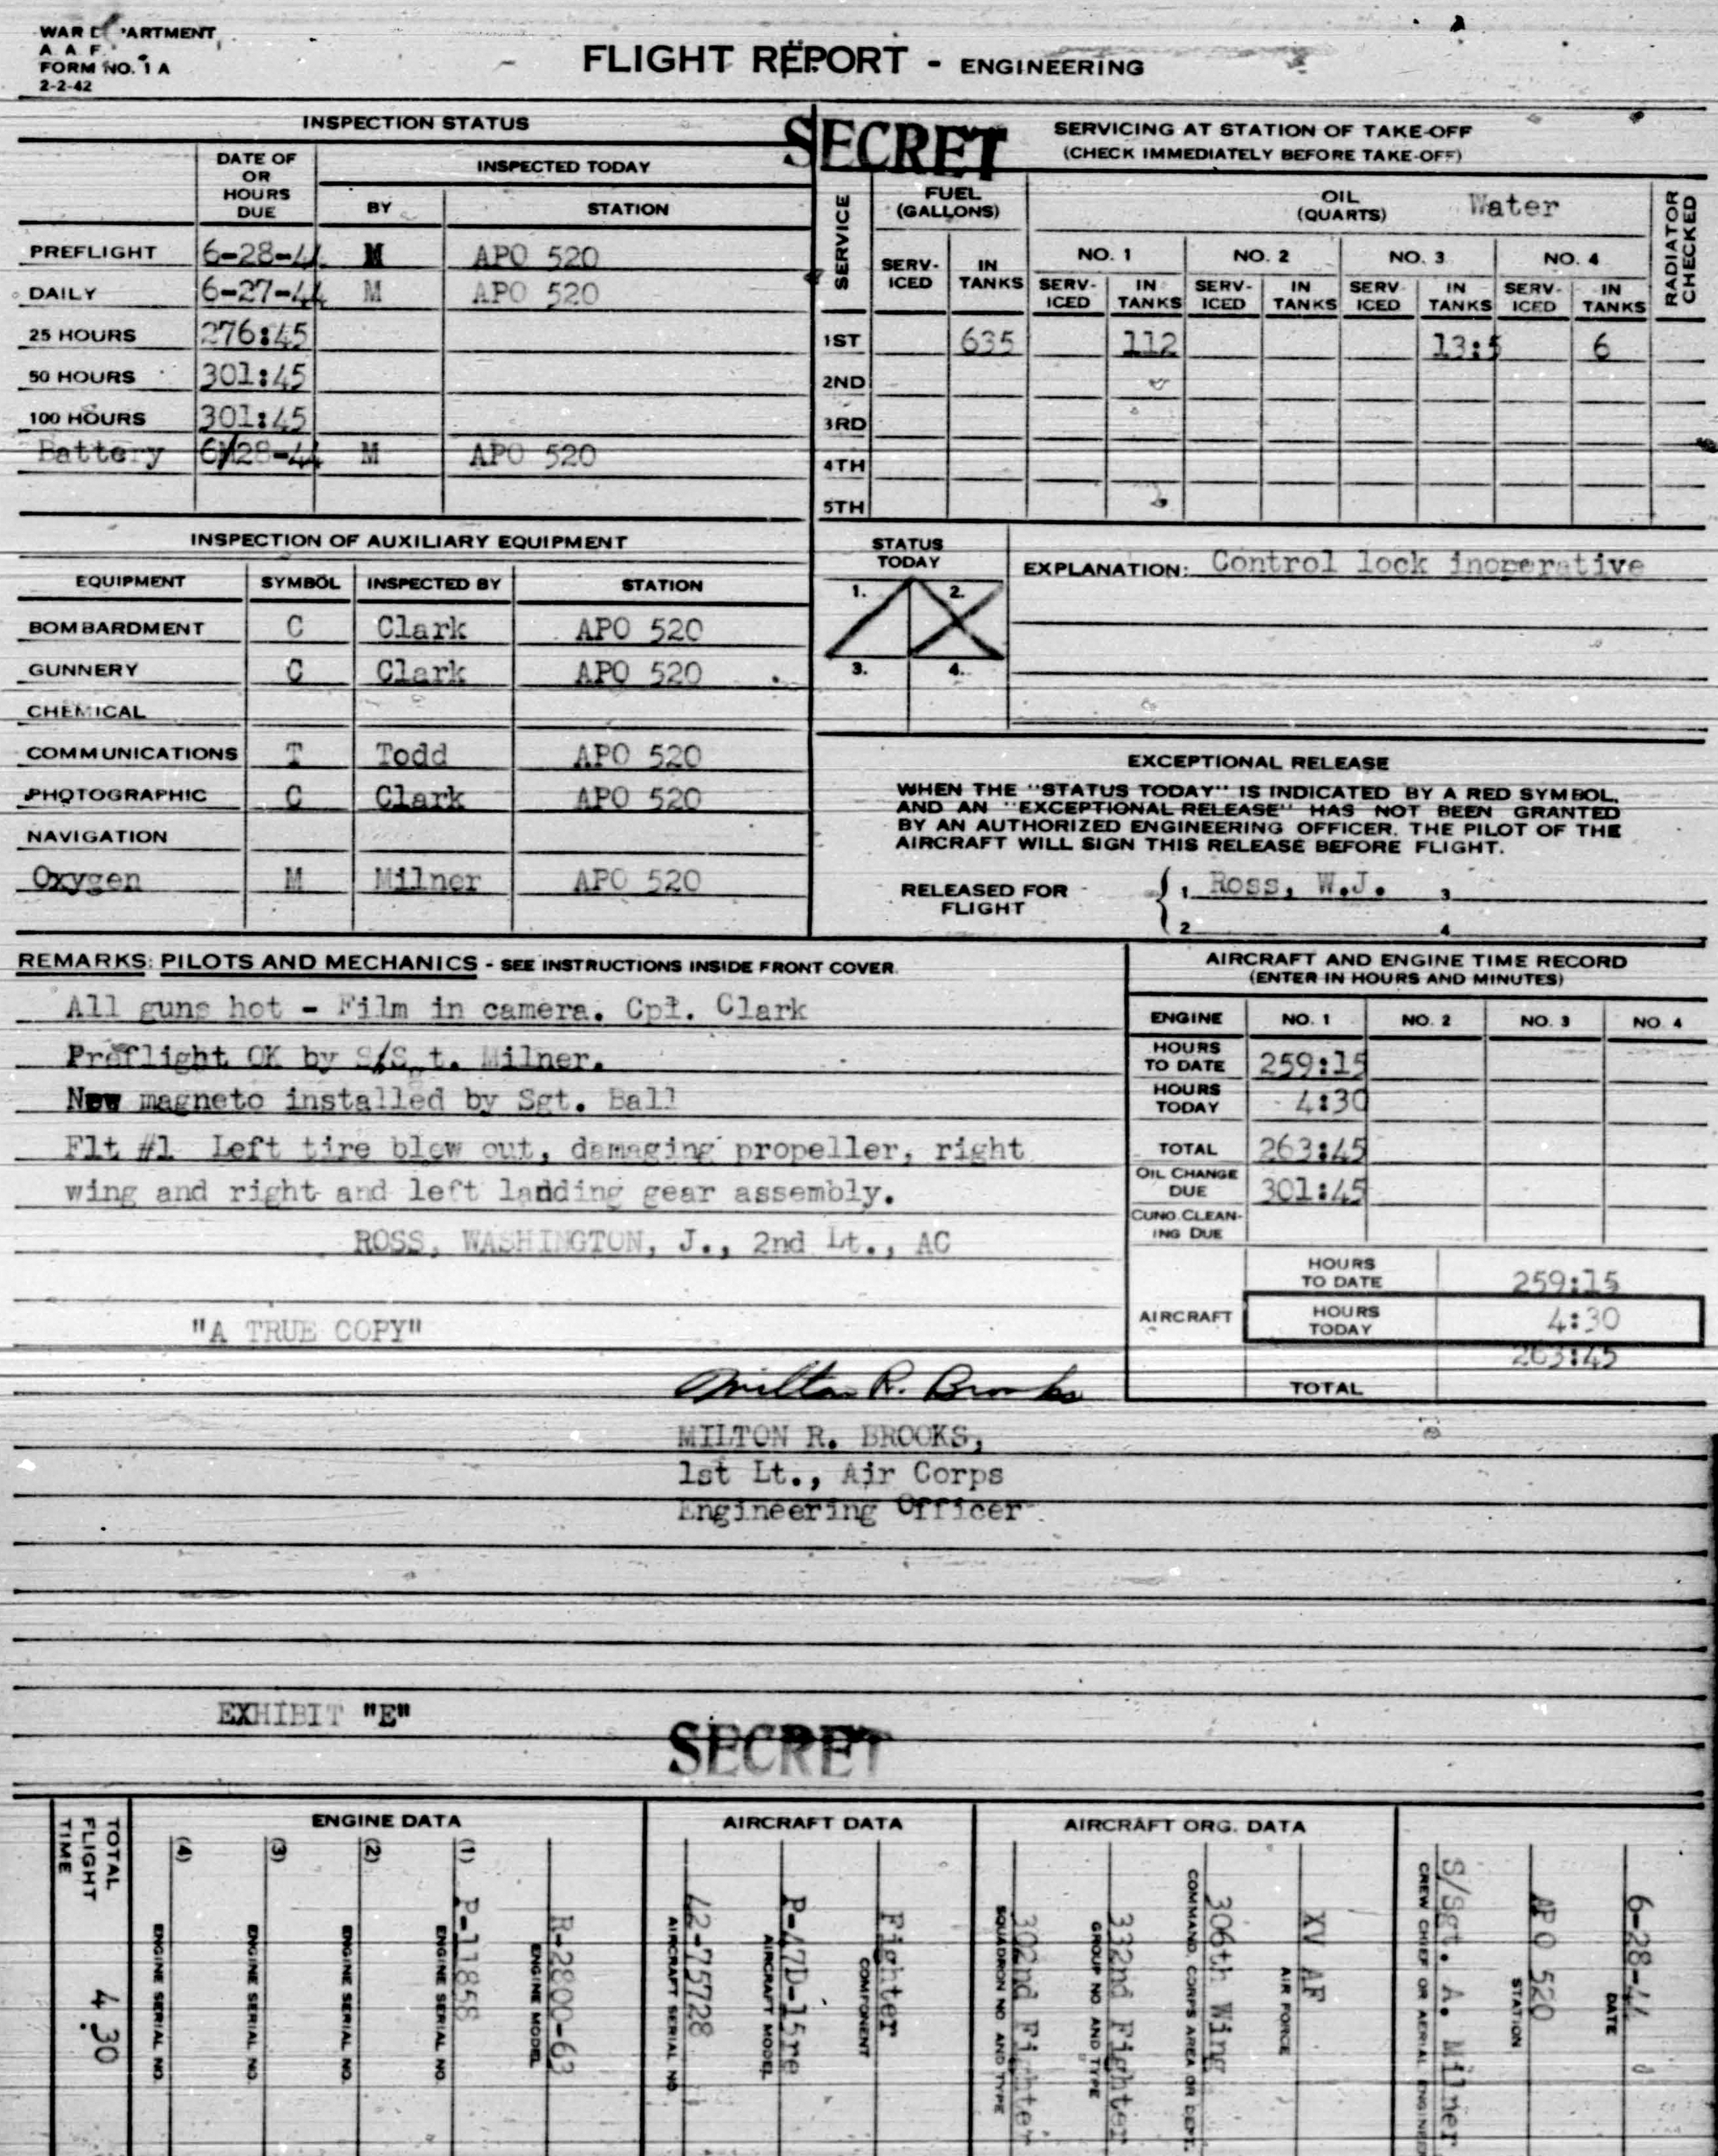 WAR DEPARTMENT
A A F
FORM NO. 1 A
2-2-42
FLIGHT REPORT - ENGINEERING
SECRET
INSPECTION STATUS
DATE OF OR HOURS DUE
INSPECTED TODAY
BY STATION
PREFLIGHT 6-28-44 M APO 520
DAILY 6-27-44 M APO 520
25 HOURS 276:45
50 HOURS 301:45
100 HOURS 301:45
Battery 6/28-44 M APO 520
SERVICING AT STATION OF TAKE-OFF
(CHECK IMMEDIATELY BEFORE TAKE-OFF)
SERVICE
FUEL (GALLONS)
OIL (QUARTS) Water
RADIATOR CHECKED
NO. 1 NO. 2 NO. 3 NO. 4
SERV-ICED IN TANKS SERV-ICED IN TANKS SERV-ICED IN TANKS SERV-ICED IN TANKS SERV-ICED IN TANKS
1ST 635 112 13:5 6
2ND
3RD
4TH
5TH
INSPECTION OF AUXILIARY EQUIPMENT
EQUIPMENT SYMBOL INSPECTED BY STATION
BOMBARDMENT C Clark APO 520
GUNNERY C Clark APO 520
CHEMICAL
COMMUNICATIONS T Todd APO 520
PHOTOGRAPHIC C Clark APO 520
NAVIGATION
Oxygen M Milner APO 520
STATUS TODAY
1. 2.
3. 4.
EXPLANATION: Control lock inoperative
EXCEPTIONAL RELEASE
WHEN THE "STATUS TODAY" IS INDICATED BY A RED SYMBOL,
AND AN "EXCEPTIONAL RELEASE" HAS NOT BEEN GRANTED
BY AN AUTHORIZED ENGINEERING OFFICER, THE PILOT OF THE
AIRCRAFT WILL SIGN THIS RELEASE BEFORE FLIGHT.
RELEASED FOR FLIGHT
1 Ross, W.J. 3
2 4
REMARKS: PILOTS AND MECHANICS - SEE INSTRUCTIONS INSIDE FRONT COVER.
All guns hot - Film in camera. Cpl. Clark
Preflight OK by S/S t. Milner.
New magneto installed by Sgt. Ball
Flt #1 Left tire blew out, damaging propeller, right
wing and right and left landing gear assembly.
ROSS, WASHINGTON, J., 2nd Lt., AC
"A TRUE COPY"
Milton R. Brooks
MILTON R. BROOKS,
1st Lt., Air Corps
Engineering Officer
AIRCRAFT AND ENGINE TIME RECORD
(ENTER IN HOURS AND MINUTES)
ENGINE NO. 1 NO. 2 NO. 3 NO. 4
HOURS TO DATE 259:15
HOURS TODAY 4:30
TOTAL 263:45
OIL CHANGE DUE 301:45
CUNO CLEAN-ING DUE
AIRCRAFT
HOURS TO DATE 259:15
HOURS TODAY 4:30
263:45
TOTAL
EXHIBIT "E"
SECRET
TOTAL FLIGHT TIME
4:30
ENGINE DATA
(4) ENGINE SERIAL NO.
(3) ENGINE SERIAL NO.
(2) ENGINE SERIAL NO.
(1) P-11858
ENGINE SERIAL NO.
R-2800-63
ENGINE MODEL
AIRCRAFT DATA
42-75728
AIRCRAFT SERIAL NO.
P-47D-15re
AIRCRAFT MODEL
Fighter
COMPONENT
AIRCRAFT ORG. DATA
302nd Fighter
SQUADRON NO. AND TYPE
332nd Fighter
GROUP NO AND TYPE
306th Wing
COMMAND, CORPS AREA OR DEPT.
XV AF
AIR FORCE
S/Sgt. A. Milner
CREW CHIEF OR AERIAL ENGINEER
APO 520
STATION
6-28-44
DATE